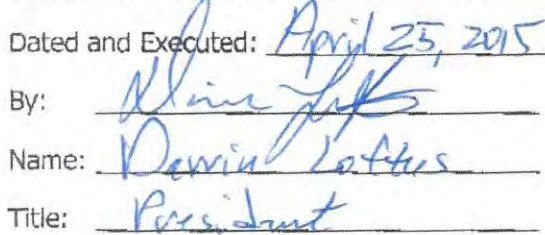 Dated and Executed: April 25, 2015
By:
Name: Derrin Loftus
Title: President